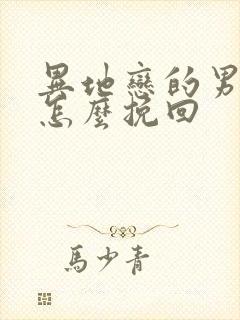 異地戀的男
怎麼挽回
馬少青